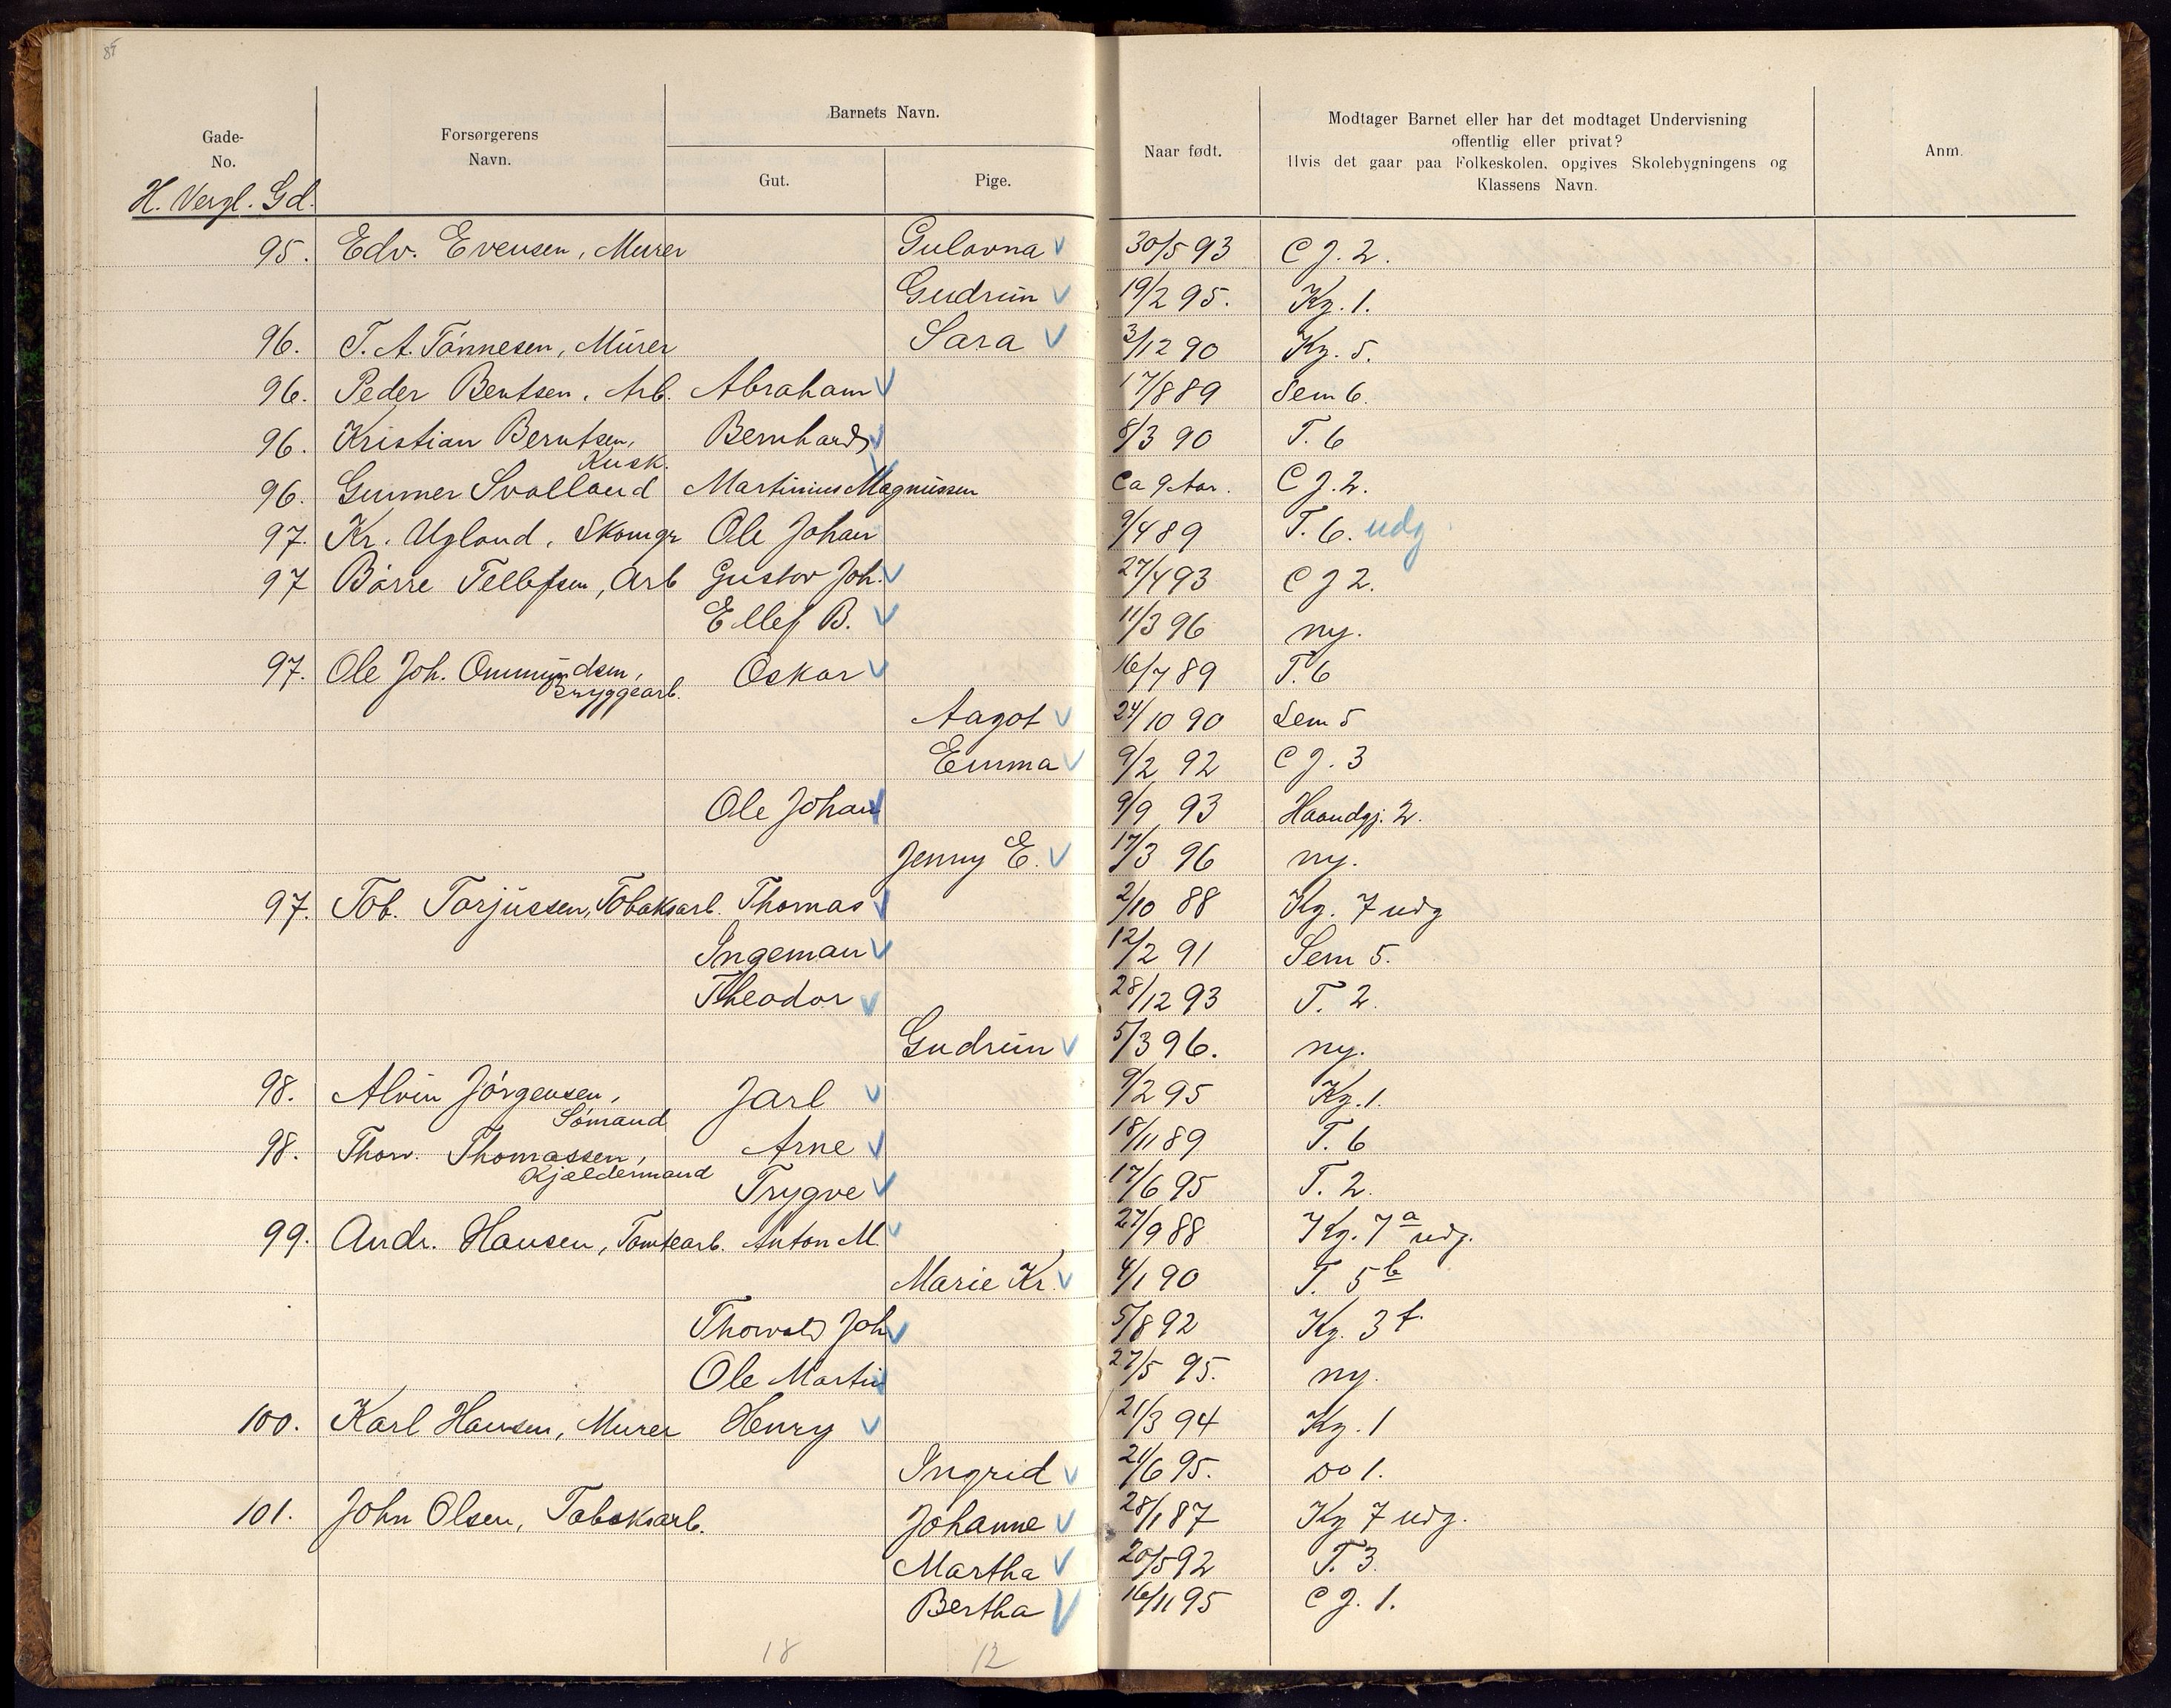 85
Gade-
No.
Forsørgerens
Navn.
Barnets Navn.
Gut.
Pige.
Naar født.
Modtager Barnet eller har det modtaget Undervisning
offentlig eller privat?
Hvis det gaar paa Folkeskolen, opgives Skolebygningens og
Klassens Navn.
Anm.
H. Vergl. Gd.
95. Edv. Evensen, Murer Gulovna 30/5 93 C J. 2.
Gudrun 19/2 95. Kg. 1.
96. T. A. Tønnesen, Murer Sara 3/12 90 Kg. 5.
96. Peder Bentsen, Arb. Abraham 17/8 89 Sem 6.
96. Kristian Berntsen, Bernhard 8/3 90 T. 6
Kusk.
96. Gunner Svalland Martinius Magnussen Ca 9 Aar. C J. 2.
97. Kr. Ugland, Skomgr Ole Johan 9/4 89 T. 6. udg
97 Børre Tellefsen, Arb Gustav Joh. 27/4 93 C J 2.
Ellef B. 11/3 96 ny.
97. Ole Joh. Ommundsen, Oskar 16/7 89 T. 6
Bryggearb.
Aagot 24/10 90 Sem 5
Emma 9/2 92 C J. 3
Ole Johan 9/9 93 Haandgj. 2.
Jenny E. 17/3 96 ny.
97. Tob. Torjussen, Tobaksarb. Thomas 2/10 88 Kg. 7 udg
Ingeman 12/2 91 Sem 5.
Theodor 28/12 93 T. 2.
Gudrun 5/3 96. ny.
98. Alvin Jørgensen, Jarl 9/2 95 Kg. 1.
Sømand
98. Thorv. Thomassen, Arne 18/11 89 T. 6
Kjeldermand Trygve 17/6 95 T. 2.
99. Andr. Hansen, Tomtearb. Anton M. 27/9 88 Kg. 7 a udg.
Marie Kr. 4/1 90 T. 5 b
Thorvald Joh 5/8 92 Kg. 3 f.
Ole Martin 27/5 95. ny.
100. Karl Hansen, Murer Henry 21/3 94 Kg. 1
Ingrid 21/6 95. Do 1.
101. John Olsen, Tobaksarb. Johanne 28/1 87 Kg 7 udg.
Martha 20/5 92 T. 3.
Bertha 16/11 95 C J. 1.
18 12